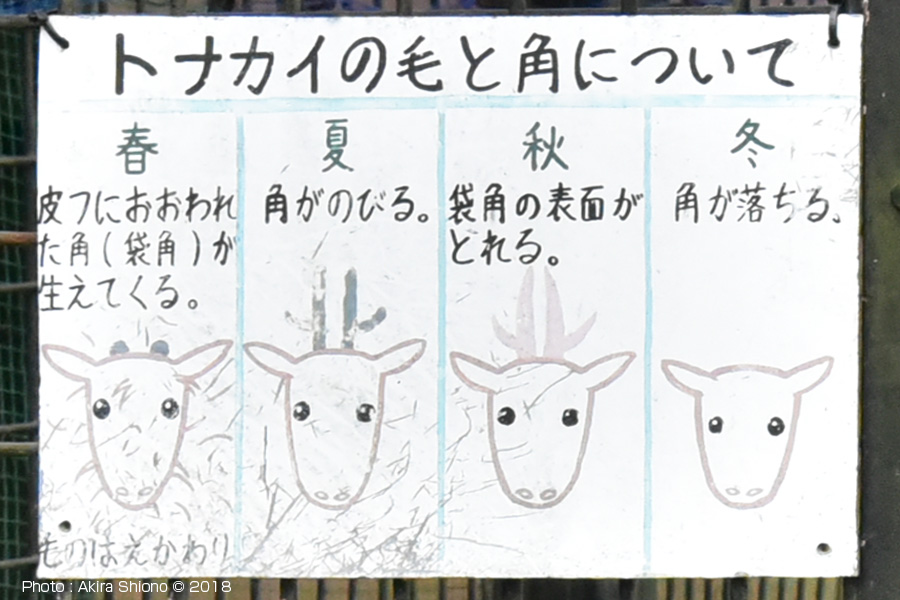 トナカイの毛と角について
春
皮フにおおわれ
た角(袋角)が
生えてくる。
夏
角がのびる。
秋
袋角の表面が
とれる。
冬
角が落ちる。
毛のはえかわり
Photo : Akira Shiono © 2018